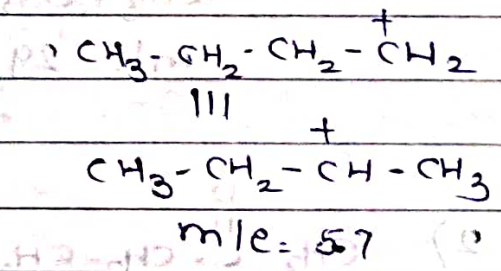 CH3-CH2-CH2-CH2+
|||
CH3-CH2-CH+-CH3
m/e = 57